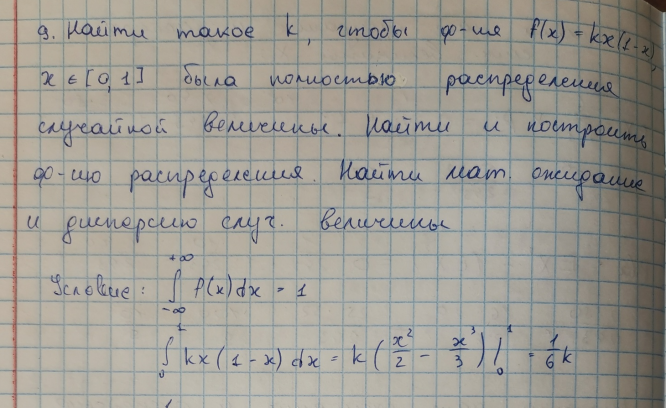 9. Найти такое k, чтобы ф-ия f(x) = kx(1-x),
x ∈ [0,1] была полностью распределения
случайной величины. Найти и построить
ф-ию распределения. Найти мат. ожидание
и дисперсию случ. величины
Условие: ∫_{-∞}^{+∞} f(x)dx = 1
∫_0^1 kx(1-x)dx = k(x²/2 - x³/3)|_0^1 = 1/6 k